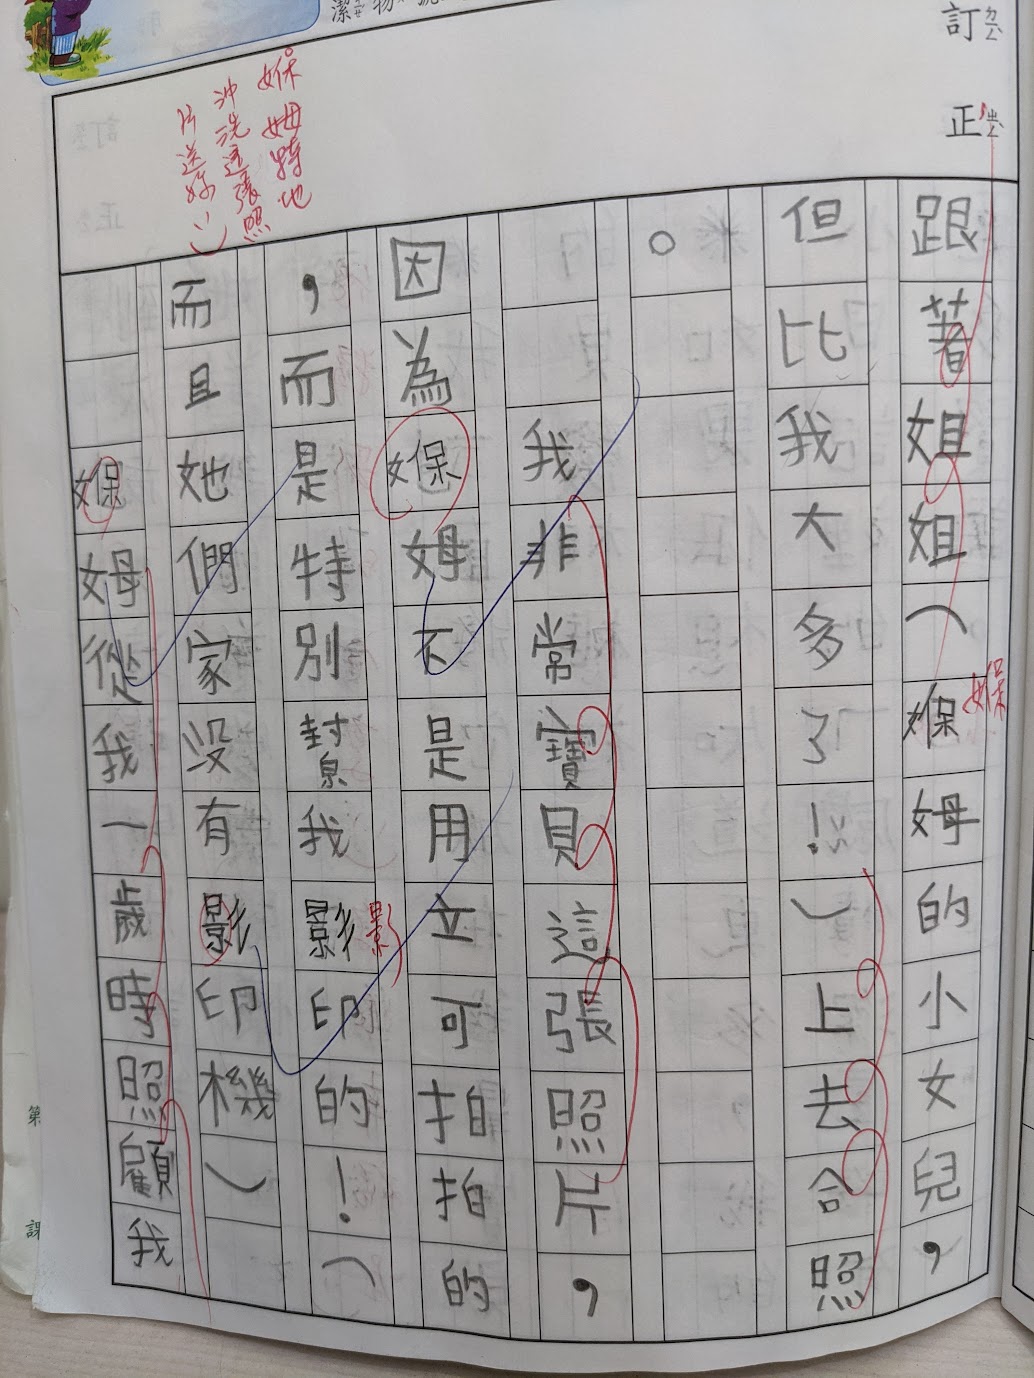 訂ㄉㄧㄥˋ
正ㄓㄥˋ
跟著姐姐（媬姆的小女兒，
媬
但比我大多了！）上去合照
。
我非常寶貝這張照片，
因為媬姆不是用立可拍拍的
，而是特別替我影印的！（
影
而且她們家沒有影印機）
媬姆從我一歲時照顧我
媬姆特地
沖洗這張照
片送妳:)
潔
物
第
課